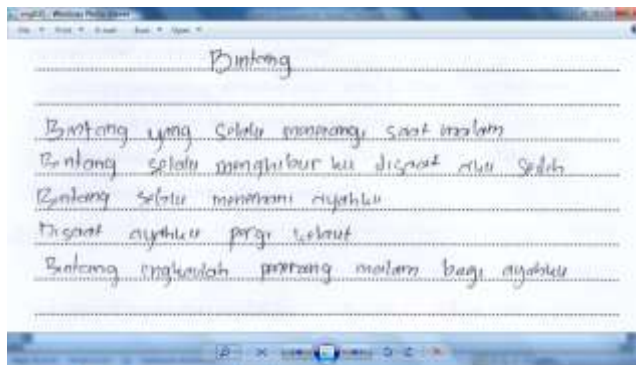 Bintang
Bintang yang selalu menerangi saat malam
Bintang selalu menghibur ku disaat aku sedih
Bintang selalu menemani ayahku
Disaat ayahku pergi kelaut
Bintang engkaulah penerang malam bagi ayahku